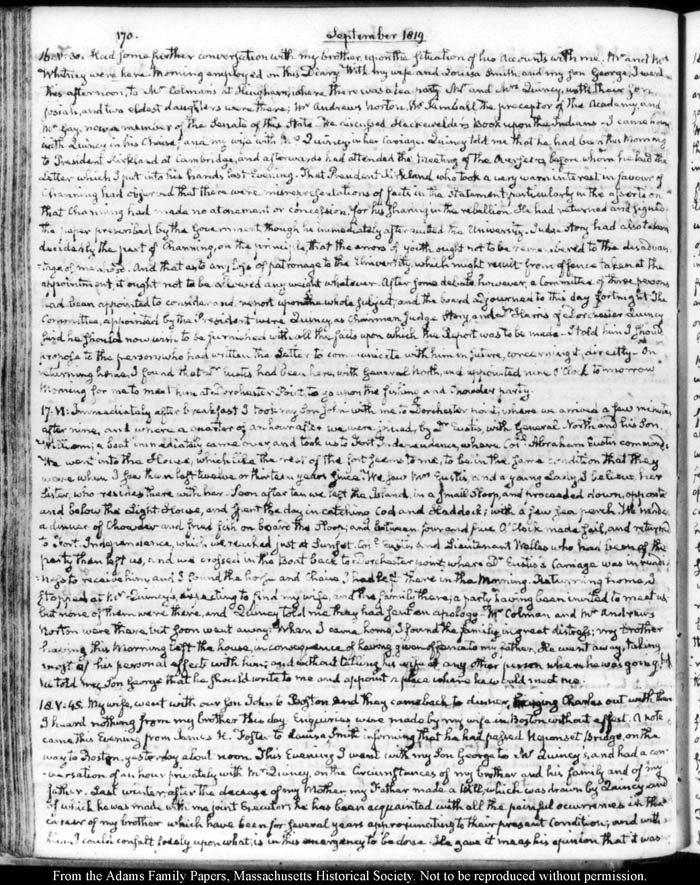 170. September 1819.
16. V:30. Had some further conversation with my brother, upon the situation of his accounts with me. Mr and Mrs
Whitney were here. Morning employed on this Diary. With my wife and Louisa Smith, and my son George, I went
this afternoon, to Mr Colman's at Hingham, where there was a tea party. Mr and Mrs Quincy, with their son
Josiah, and two eldest daughters were there; Mr Andrews Norton, Mr the preceptor of the Academy, and
Mr Gay, now a member of the Senate of this State. We discussed Heckewelder's Book upon the Indians. I came home
with Quincy in his Chaise, and my wife with Mrs Quincy in her Carriage. Quincy told me that he had been this Morning
to President Kirkland at Cambridge, and afterwards had attended the meeting of the Overseers, before whom he laid the
Letter which I put into his hands last Evening. That President Kirkland who took a very warm interest in favour of
Channing had observed that there were misrepresentations of facts in the Statement, particularly in the assertion
that Channing had made no atonement or concession, for his sharing in the rebellion. He had returned and signed
the paper prescribed by the Government though he immediately after quitted the University. Judge Story had also taken
decidedly the part of Channing, on the principle, that the errors of youth ought not to be remembered to the disadvan-
tage of manhood. And that as to any loss of patronage to the University, which might result from offence taken at the
appointment, it ought not to be allowed any weight whatever. After some debate, however, a Committee of three persons
had been appointed to consider and report upon the whole subject, and the board adjourned to this day fortnight. The
Committee, appointed by the President were Quincy, as Chairman, Judge Story and Dr Harris of Dorchester. Quincy
said he should now wish to be furnished with all the facts upon which the Report was to be made. I told him I should
propose to the person who had written the Letter to communicate with him in future, concerning it, directly. On
returning home, I found that Dr Eustis had been here, with General North, and appointed nine O'Clock tomorrow
Morning for me to meet him at Dorchester Point, to go upon the fishing and Chowder party.
17. VI: Immediately after breakfast I took my Son John with me to Dorchester point, where we arrived a few minutes
after nine, and where a quarter of an hour after we were joined, by Dr Eustis, with General North, and his Son,
William; a boat immediately came over, and took us to Fort Independence, where Coll Abraham Eustis commands.
We went into the House, which like the rest of the fort seems to me, to be in the same condition that they
were when I saw them last twelve or thirteen years since. We saw Mrs Eustis, and a young Lady, I believe her
Sister, who resides there with her. Soon after ten we left the Island, in a small Sloop, and proceeded down, opposite
and below the Light House, and spent the day in catching Cod and Haddock; with a few sea perch. We made
a dinner of Chowder and fried fish on board the Sloop; and between four and five O'Clock made sail, and returned
to Fort Independence, which we reached just at Sunset. Coll Eustis and Lieutenant Welles who had been of the
party then left us, and we crossed in the Boat back to Dorchester point, where Dr Eustis's Carriage was in readi-
ness to receive him, and I found the horse and Chaise I had left there in the Morning. Returning home I
stopped at Mr Quincy's, expecting to find my wife, and the family there; a party having been invited to meet us
but none of them were there, and Quincy told me they had sent an apology. Mr Colman and Mr Andrews
Norton were there, but soon went away. When I came home, I found the family in great distress; my brother
having this Morning left the house, in consequence of having given offence to my father. He went away, taking
most of his personal effects with him; and without telling his wife or any other person where he was going. But
he told my Son George that he should write to me and appoint a place where he would meet me.
18. V:45. My wife, went with our Son John to Boston and they came back to dinner, bringing Charles out with them
I heard nothing from my brother this day. Enquiries were made by my wife in Boston without effect. A note
came this Evening from James H. Foster to Louisa Smith informing that he had passed Neponset Bridge, on the
way to Boston, yesterday about noon. This Evening I went with my Son George to Mr Quincy's, and had a con-
versation of an hour privately with Mr Quincy, on the Circumstances of my brother and his family and of my
father. Last winter, after the decease of my Mother, my Father made a Will, which was drawn by Quincy and
of which he was made with me joint Executor; he has been acquainted with all the painful occurrences in the
career of my brother which have been for several years approximating to their present condition; and with
him I could consult freely upon what, is in this emergency to be done. He gave it me as his opinion that it was
From the Adams Family Papers, Massachusetts Historical Society. Not to be reproduced without permission.